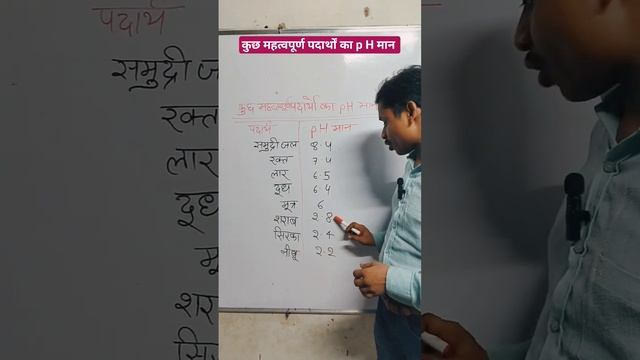 कुछ महत्वपूर्ण पदार्थों का p H मान
कुछ महत्वपूर्ण पदार्थों का pH मान
पदार्थ pH मान
समुद्री जल 8.4
रक्त 7.4
लार 6.5
दूध 6.4
मूत्र 6
शराब 2.8
सिरका 2.4
नीबू 2.2